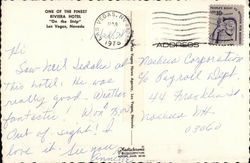 ONE OF THE FINEST
RIVIERA HOTEL
"On the Strip"
Las Vegas, Nevada
LAS VEGAS, NV
PM
1976
ADDRESS
Hi
Saw Neil Sedaka at
this hotel. He was
really good.
fantastic. Won
Out of sight! I
love it. See you
Corporation
% Payroll Dept.
44 Franklin St.
Nashua NH
03060